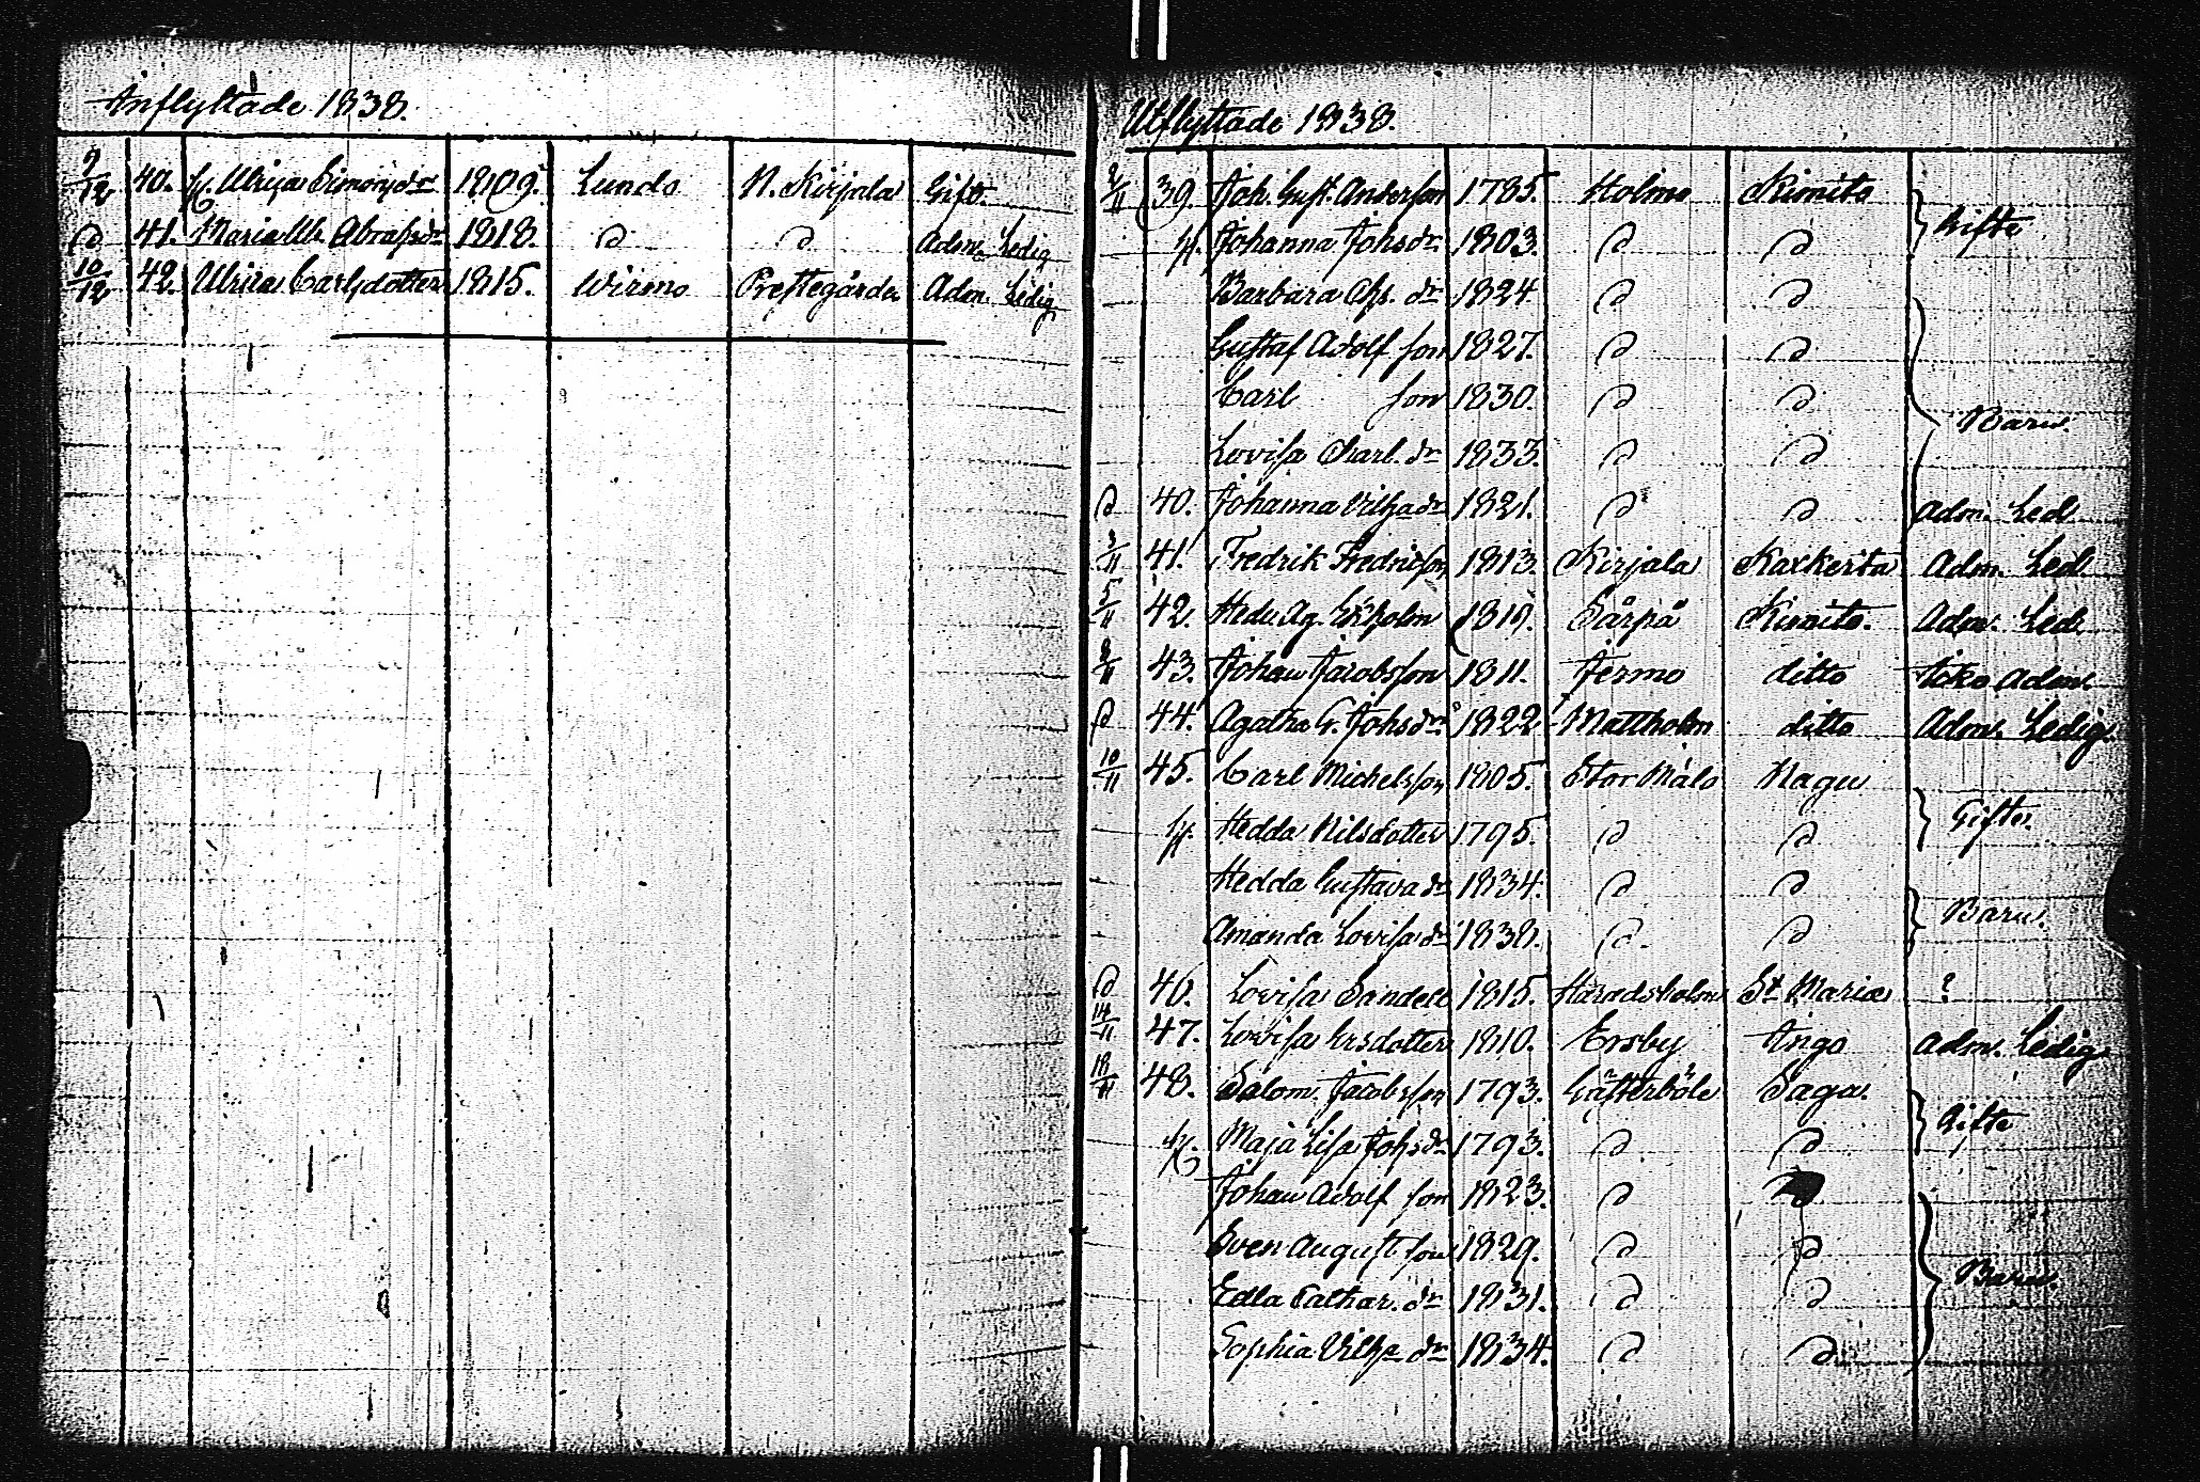 Inflyttade 1838.
9/12 40. H. Ulrica Simonsdr 1809. Lundo N. Kirjala Gift.
D 41. Maria Ulr. Abrahsdr 1818. D D Adm. Ledig
10/12 42. Ulrica Carlsdotter 1815. Wirmo Prestegården Adm. Ledig
Utflyttade 1838.
2/11 39. Joh. Gust. Andersson 1785. Holmo Kimito
H. Johanna Johsdr 1803. D D Gifte
Barbara Chs. dr 1824 D D
Gustaf Adolf son 1827. D D
Carl son 1830. D D
Barn.
Lovisa Charl. dr 1833. D D
D 40. Johanna Vilhadr 1821. D D Adm. Led.
3/11 41. Fredrik Fredricsson 1813. Kirjala Kaxkerta Adm. Led.
5/11 42. Hedv. Ag. 1819. Sårpå Kimito. Adm. Led.
8/11 43. Johan Jacobsson 1811. Jermo ditto Icke Adm.
D 44. Agatha G. Johsdr 1822 Mattholm ditto Adm. Ledig.
10/11 45. Carl Michelsson 1805. Stor Målo Nagu
H. Hedda Nilsdotter 1795. D D Gifte.
Hedda Gustava dr 1834. D D
Amanda Lovisa dr 1838. D D Barn.
D 46. Lovisa Sandell 1815. Haradsholm St Mariæ ?
14/11 47. Lovisa Ersdotter 1810. Ersby Ingo Adm. Ledig
18/11 48. Salom. Jacobsson 1793. Gästerböle Sagu.
H. Maja Lisa Johsdr 1793. D D Gifte
Johan Adolf son 1823. D D
Sven August son 1829. D D
Edla Cathar. dr 1831. D D Barn.
Sophia Vilha dr 1834. D D